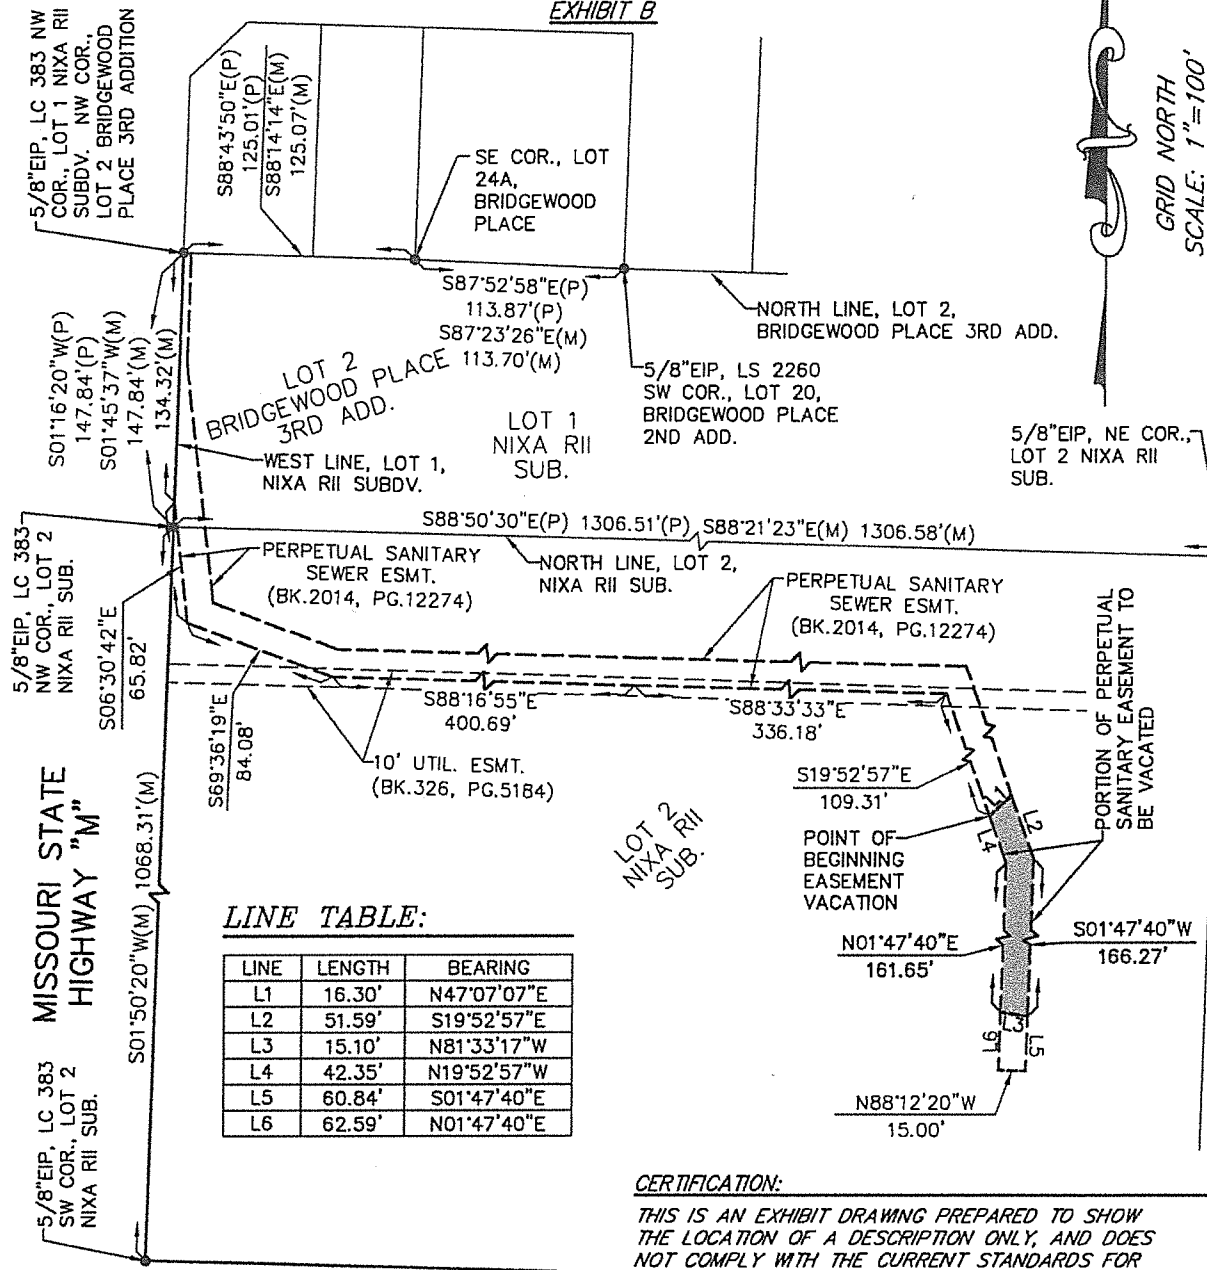 EXHIBIT B
5/8"EIP, LC 383 NW
COR., LOT 1 NIXA RII
SUBDV. NW COR.,
LOT 2 BRIDGEWOOD
PLACE 3RD ADDITION
S88°43'50"E(P)
125.01'(P)
S88°14'14"E(M)
125.07'(M)
SE COR., LOT
24A,
BRIDGEWOOD
PLACE
GRID NORTH
SCALE: 1"=100'
S87°52'58"E(P)
113.87'(P)
S87°23'26"E(M)
113.70'(M)
NORTH LINE, LOT 2,
BRIDGEWOOD PLACE 3RD ADD.
5/8"EIP, LS 2260
SW COR., LOT 20,
BRIDGEWOOD PLACE
2ND ADD.
S01°16'20"W(P)
147.84'(P)
S01°45'37"W(M)
147.84'(M)
134.32'(M)
LOT 2
BRIDGEWOOD PLACE
3RD ADD.
LOT 1
NIXA RII
SUB.
WEST LINE, LOT 1,
NIXA RII SUBDV.
5/8"EIP, NE COR.,
LOT 2 NIXA RII
SUB.
S88°50'30"E(P) 1306.51'(P) S88°21'23"E(M) 1306.58'(M)
NORTH LINE, LOT 2,
NIXA RII SUB.
5/8"EIP, LC 383
NW COR., LOT 2
NIXA RII SUB.
PERPETUAL SANITARY
SEWER ESMT.
(BK.2014, PG.12274)
PERPETUAL SANITARY
SEWER ESMT.
(BK.2014, PG.12274)
S06°30'42"E
65.82'
S69°36'19"E
84.08'
S88°16'55"E
400.69'
S88°33'33"E
336.18'
10' UTIL. ESMT.
(BK.326, PG.5184)
PORTION OF PERPETUAL
SANITARY EASEMENT TO
BE VACATED
S19°52'57"E
109.31'
L1
L2
L4
POINT OF
BEGINNING
EASEMENT
VACATION
LOT 2
NIXA RII
SUB.
MISSOURI STATE
HIGHWAY "M"
S01°50'20"W(M) 1068.31'(M)
N01°47'40"E
161.65'
S01°47'40"W
166.27'
L3
L6
L5
N88°12'20"W
15.00'
LINE TABLE:
LINE LENGTH BEARING
L1 16.30' N47°07'07"E
L2 51.59' S19°52'57"E
L3 15.10' N81°33'17"W
L4 42.35' N19°52'57"W
L5 60.84' S01°47'40"E
L6 62.59' N01°47'40"E
5/8"EIP, LC 383
SW COR., LOT 2
NIXA RII SUB.
CERTIFICATION:
THIS IS AN EXHIBIT DRAWING PREPARED TO SHOW
THE LOCATION OF A DESCRIPTION ONLY, AND DOES
NOT COMPLY WITH THE CURRENT STANDARDS FOR